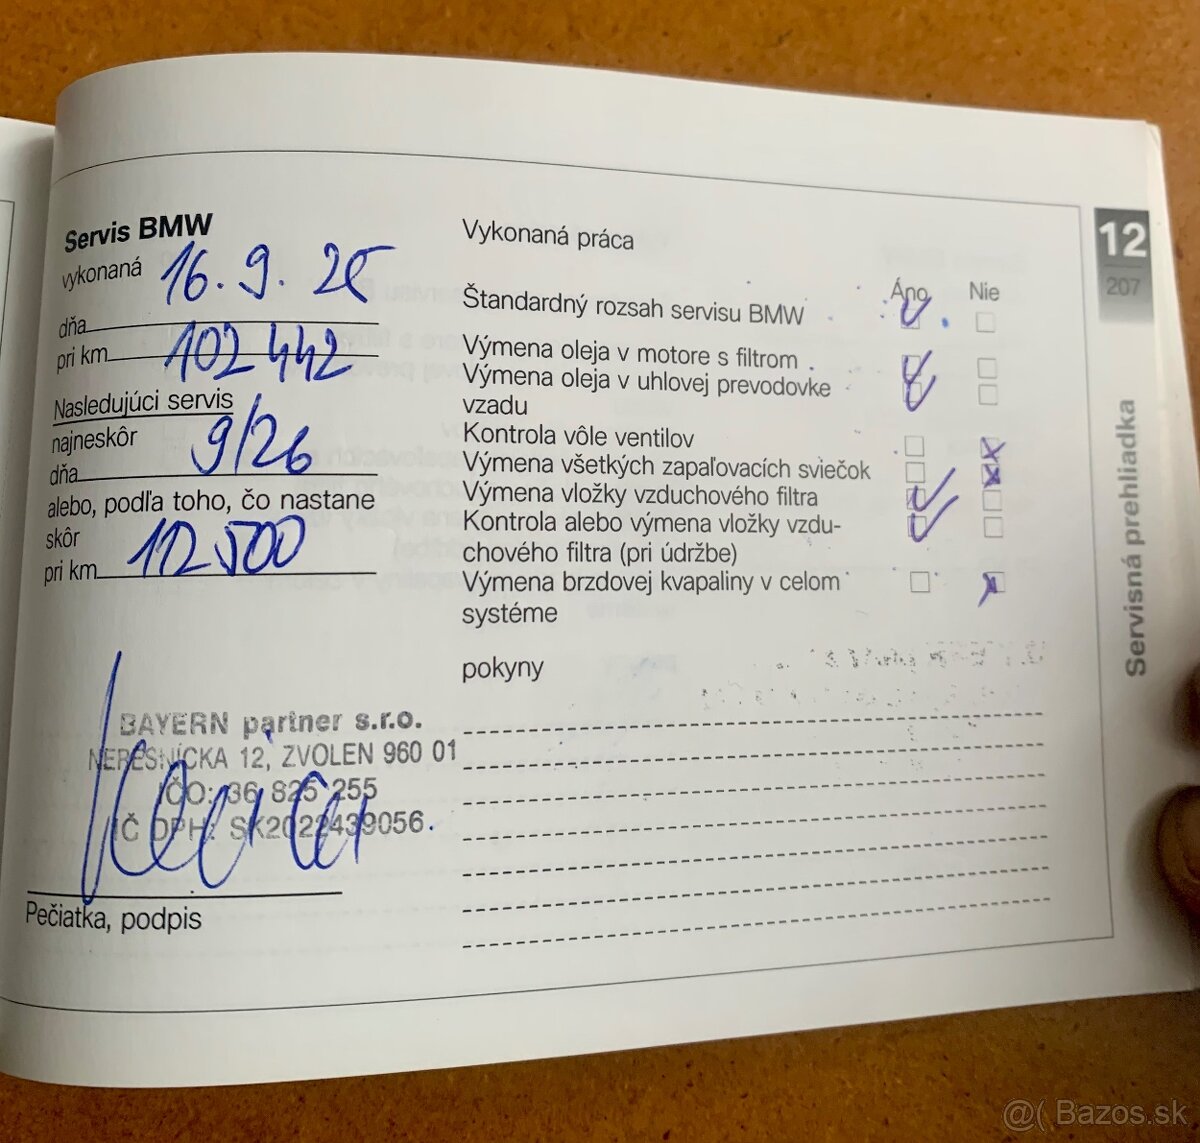 Servis BMW
vykonaná 16. 9. 25
dňa
pri km 102 442
Nasledujúci servis
najneskôr 9/26
dňa
alebo, podľa toho, čo nastane
skôr
pri km 112 500
BAYERN partner s.r.o.
NERESNÍCKA 12, ZVOLEN 960 01
IČO: 36 825 255
IČ DPH: SK2022439056.
Pečiatka, podpis
Vykonaná práca
Áno Nie
Štandardný rozsah servisu BMW
Výmena oleja v motore s filtrom
Výmena oleja v uhlovej prevodovke
vzadu
Kontrola vôle ventilov
Výmena všetkých zapaľovacích sviečok
Výmena vložky vzduchového filtra
Kontrola alebo výmena vložky vzdu-
chového filtra (pri údržbe)
Výmena brzdovej kvapaliny v celom
systéme
pokyny
12
207
Servisná prehliadka
@( Bazos.sk